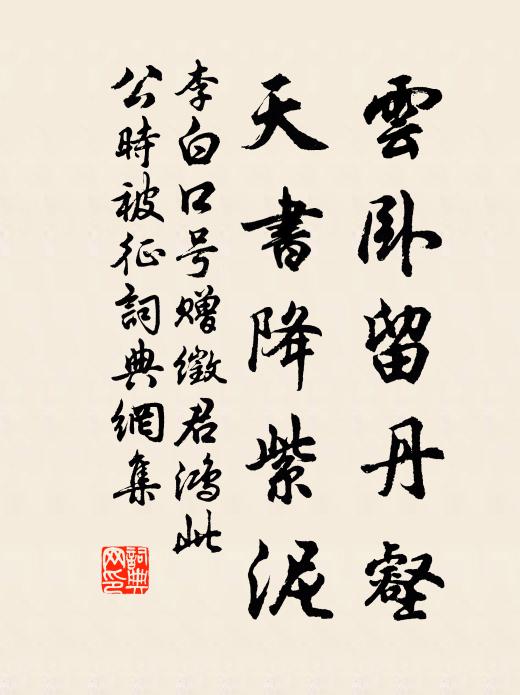 雲卧留丹壑
天書降紫泥
李白口号赠徵君鸿此
公時被征詞典網集
詞典网印